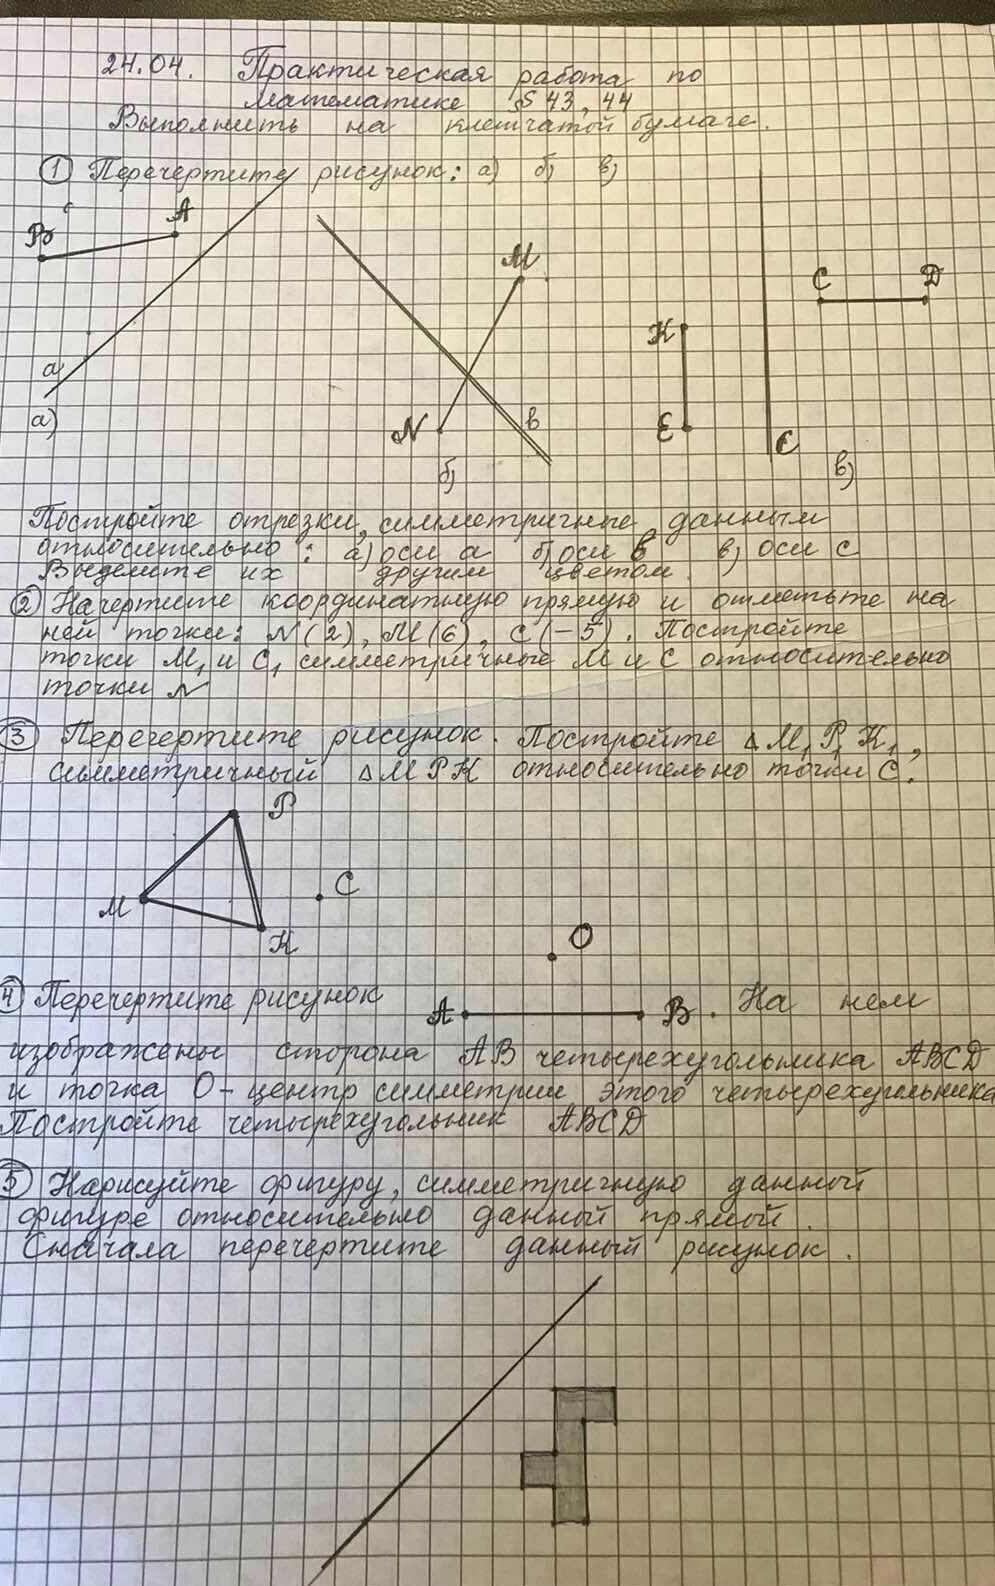 24.04. Практическая работа по
математике § 43, 44
Выполнить на клетчатой бумаге.
① Перечертите рисунок: а) б) в)
B A
M
C D
K
a
а)
N
E
в
c
б)
в)
Постройте отрезки, симметричные данным
относительно: а) оси а б) оси в в) оси с
Выделите их другим цветом.
② Начертите координатную прямую и отметьте на
ней точки: N(2), M(6), C(-5). Постройте
точки M₁ и C₁ симметричные M и C относительно
точки N
③ Перечертите рисунок. Постройте △M₁P₁K₁,
симметричный △MPK относительно точки C.
P
C
M
K
O
④ Перечертите рисунок A B. На нем
изображены сторона AB четырехугольника ABCD
и точка O - центр симметрии этого четырехугольника
Постройте четырехугольник ABCD
⑤ Нарисуйте фигуру, симметричную данной
фигуре относительно данной прямой.
Сначала перечертите данный рисунок.